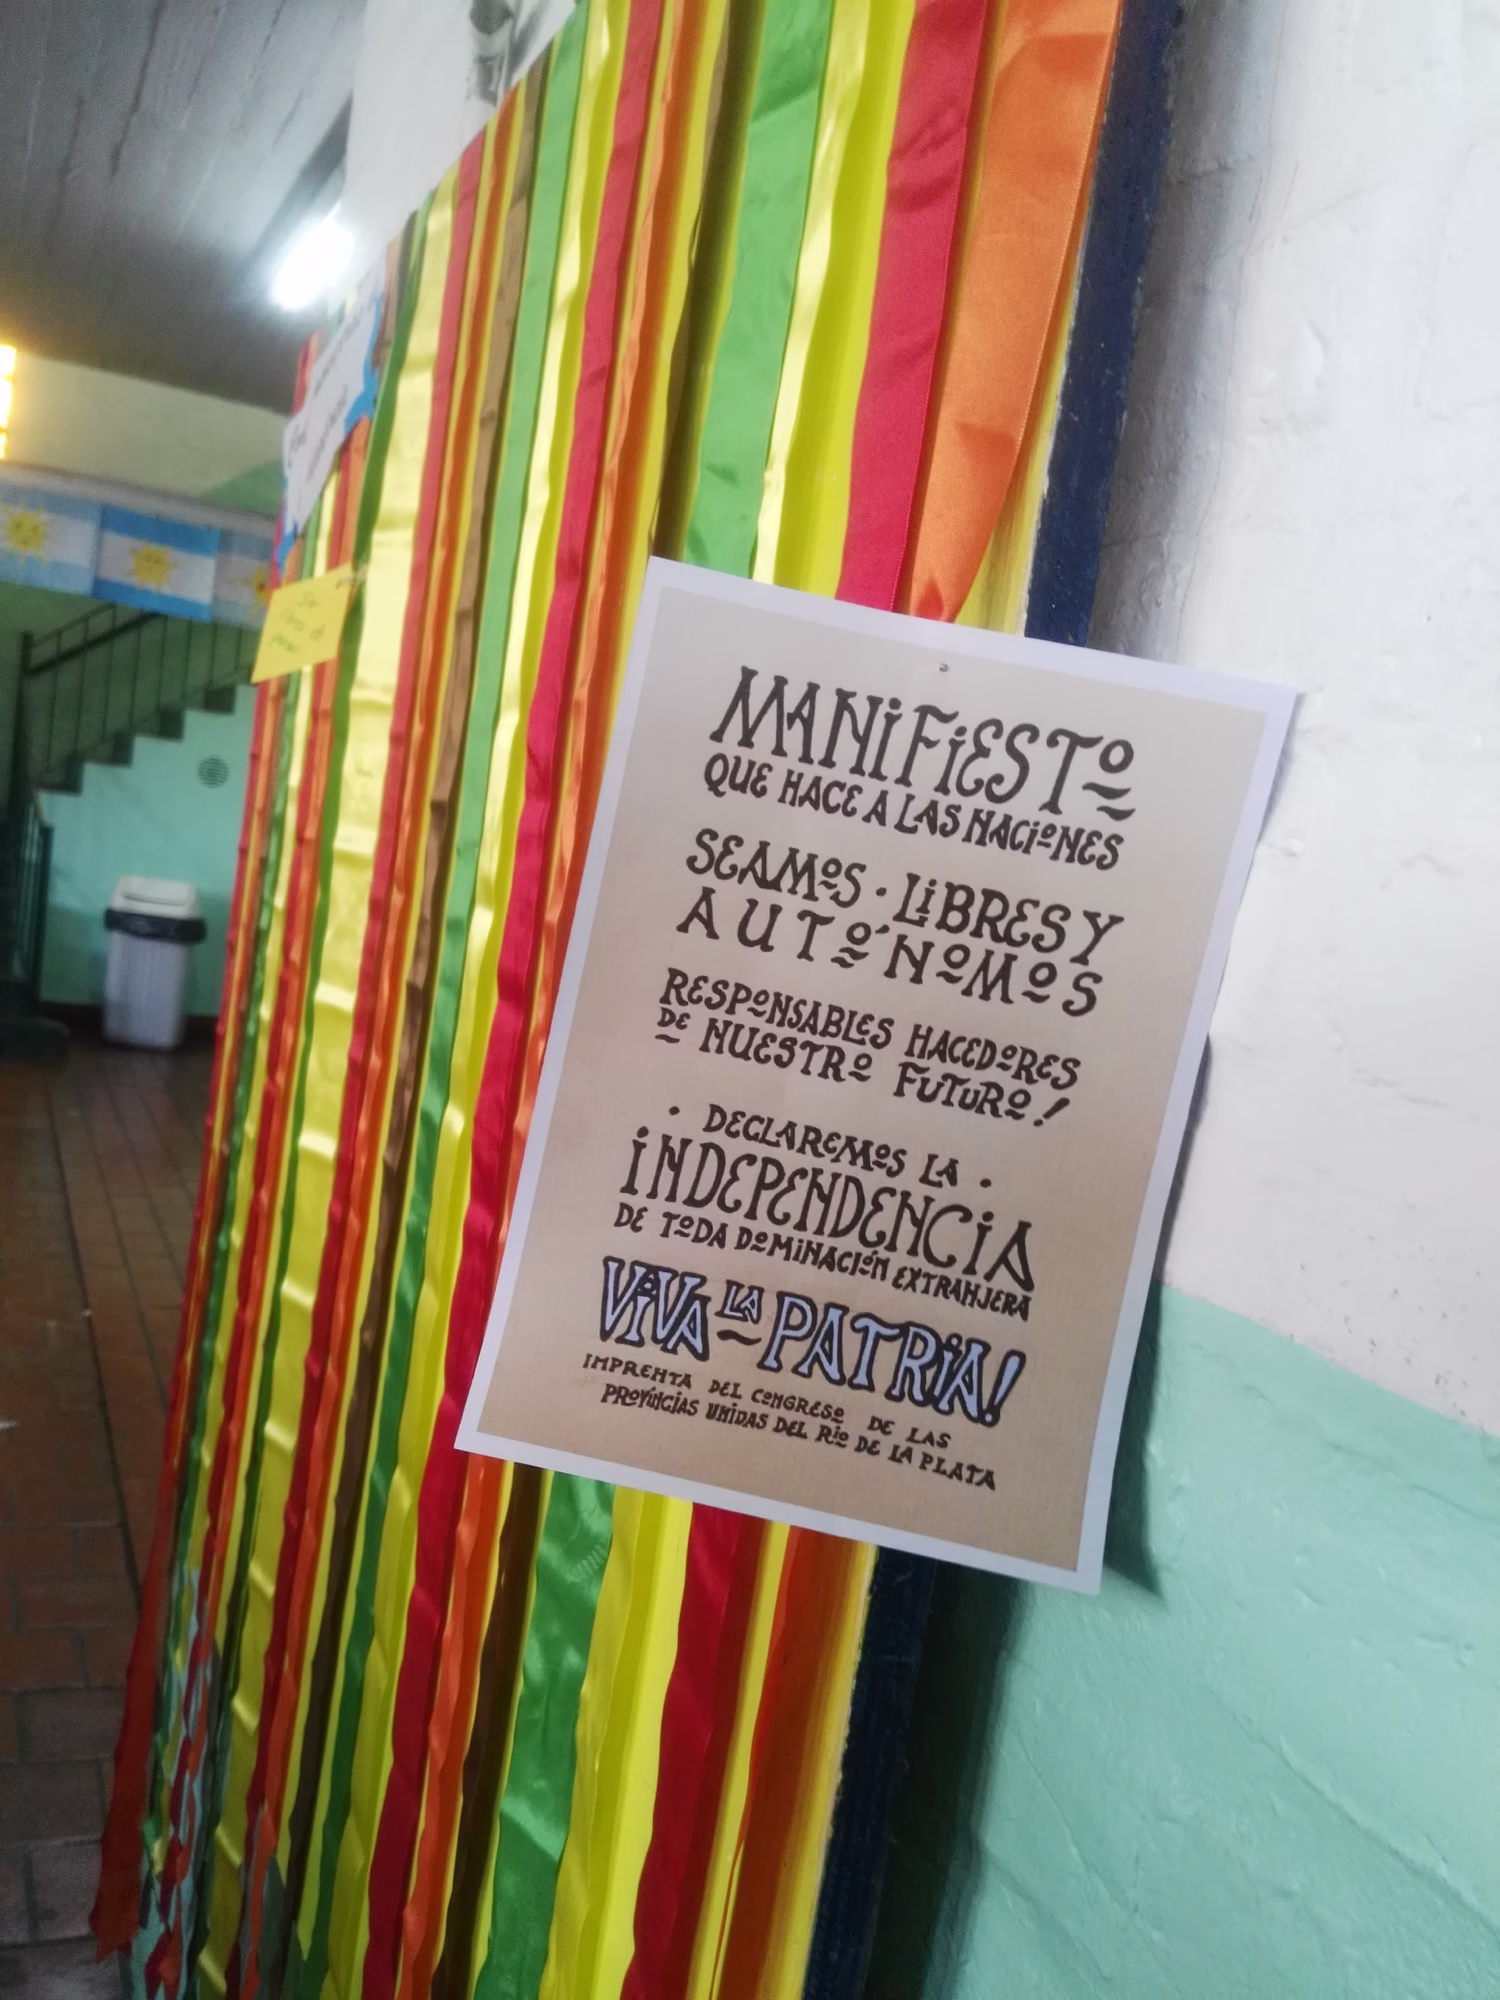 MANiFiESTo
QUE HACE A LAS NACioNES
SEAMoS · LiBRES Y
AUTóNoMoS
RESPoNSABLES HACEDoRES
DE NUESTRo FUTURo!
· DECLAREMoS LA ·
iNDEPENDENCiA
DE ToDA DoMiNACióN EXTRANJERA
ViVA LA PATRiA!
IMPRENTA DEL CoNGRESo DE LAS
PRoVíNCiAS UNiDAS DEL Rio DE LA PLATA